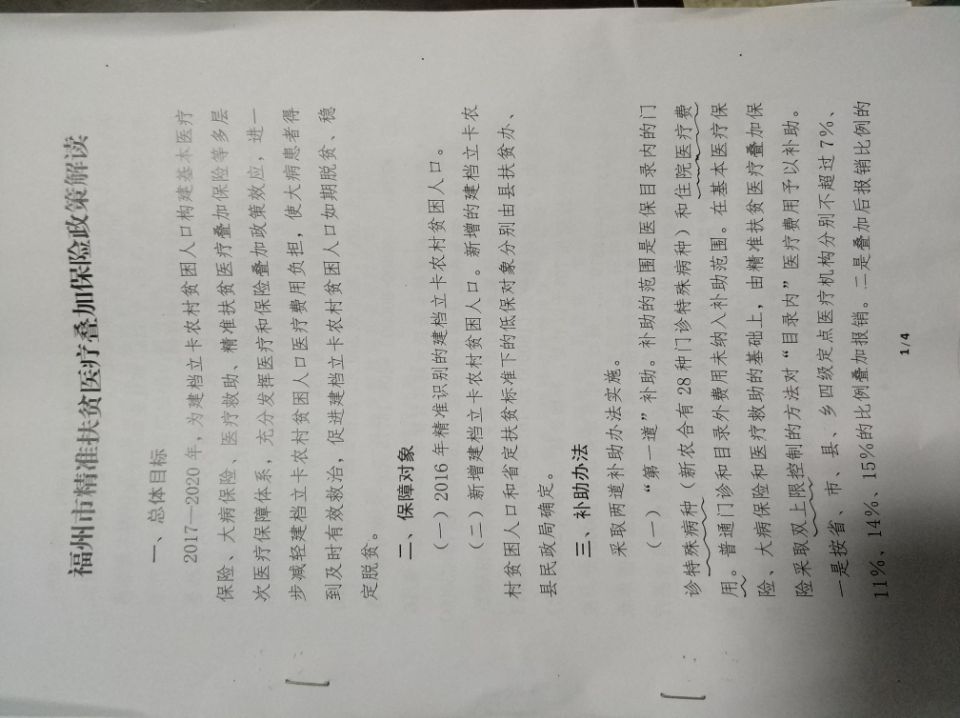 福州市精准扶贫医疗叠加保险政策解读
一、总体目标
2017—2020 年，为建档立卡农村贫困人口构建基本医疗
保险、大病保险、医疗救助、精准扶贫医疗叠加保险等多层
次医疗保障体系，充分发挥医疗和保险叠加政策效应，进一
步减轻建档立卡农村贫困人口医疗费用负担，使大病患者得
到及时有效救治，促进建档立卡农村贫困人口如期脱贫、稳
定脱贫。
二、保障对象
（一）2016 年精准识别的建档立卡农村贫困人口。
（二）新增建档立卡农村贫困人口。新增的建档立卡农
村贫困人口和省定扶贫标准下的低保对象分别由县扶贫办、
县民政局确定。
三、补助办法
采取两道补助办法实施。
（一）“第一道”补助。补助的范围是医保目录内的门
诊特殊病种（新农合有 28 种门诊特殊病种）和住院医疗费
用。普通门诊和目录外费用未纳入补助范围。在基本医疗保
险、大病保险和医疗救助的基础上，由精准扶贫医疗叠加保
险采取双上限控制的方法对“目录内”医疗费用予以补助。
一是按省、市、县、乡四级定点医疗机构分别不超过 7%、
11%、14%、15%的比例叠加报销。二是叠加后报销比例的
1/4